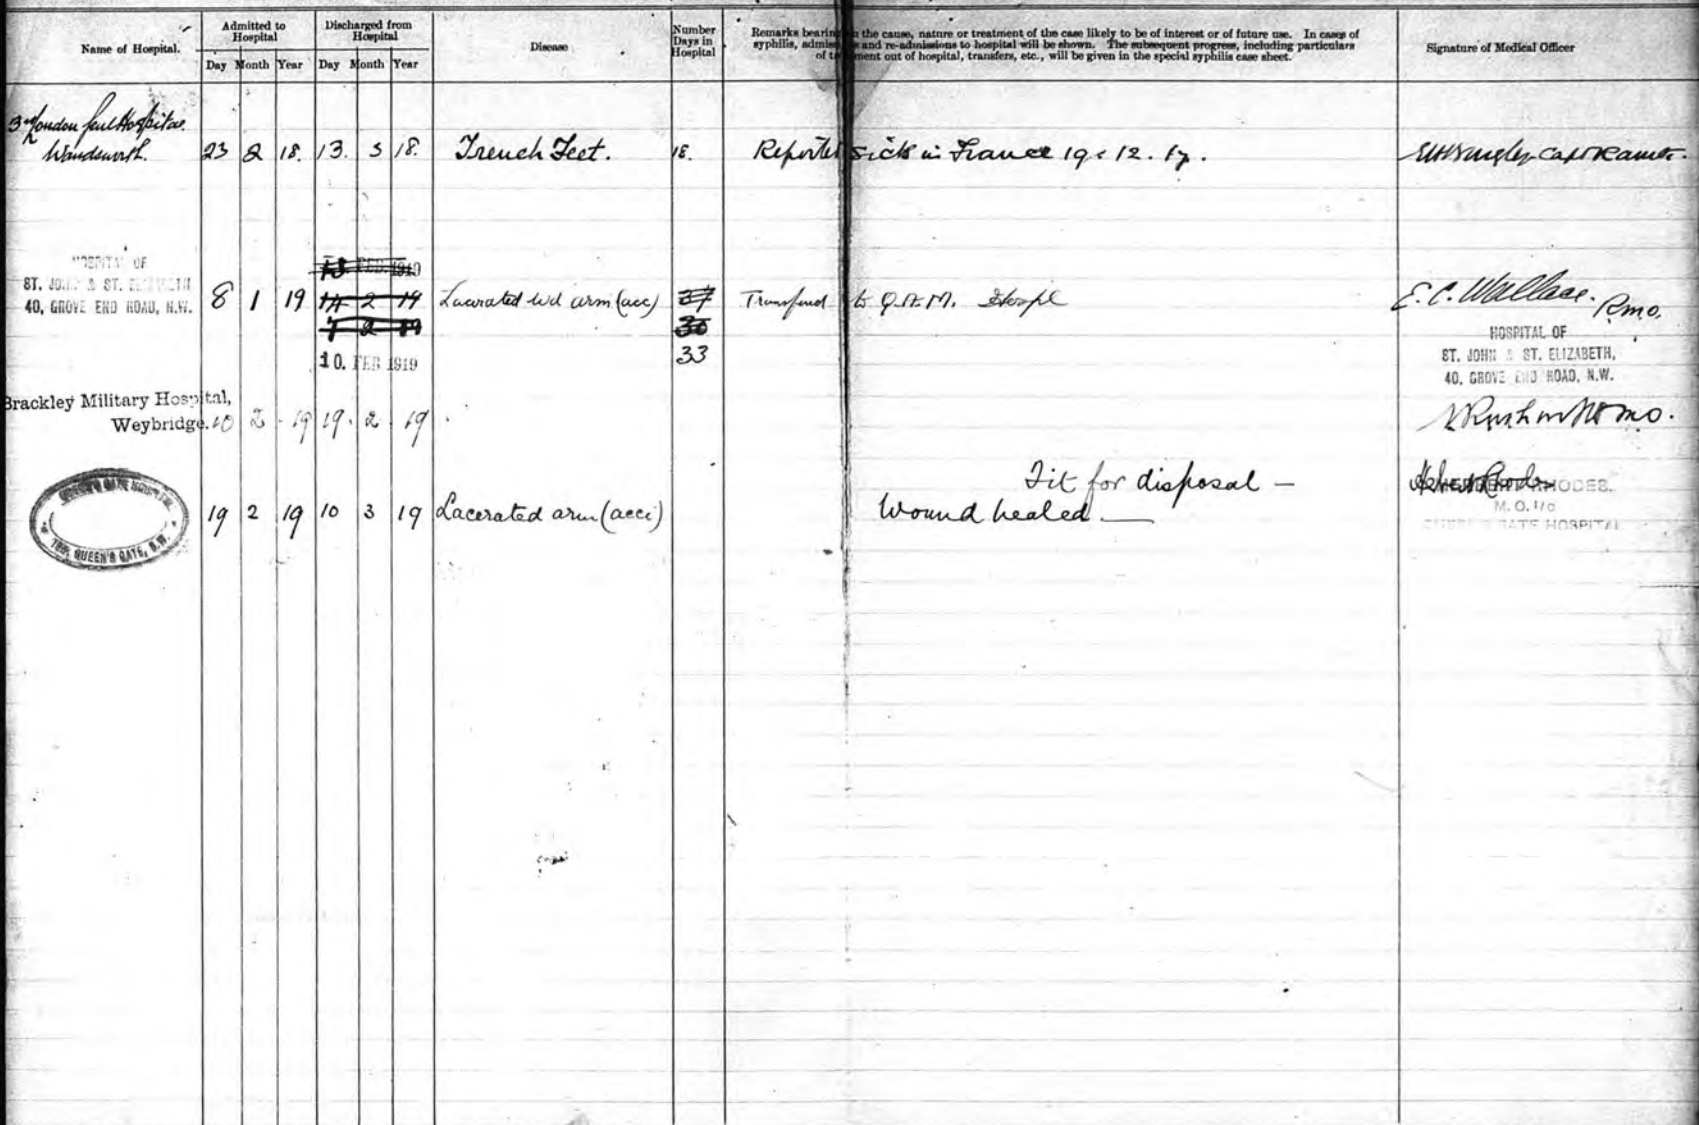 Name of Hospital.
Admitted to Hospital
Day Month Year
Discharged from Hospital
Day Month Year
Disease
Number Days in Hospital
Remarks bearing on the cause, nature or treatment of the case likely to be of interest or of future use. In cases of
syphilis, admissions and re-admissions to hospital will be shown. The subsequent progress, including particulars
of treatment out of hospital, transfers, etc., will be given in the special syphilis case sheet.
Signature of Medical Officer
3rd London Genl Hospital
Wandsworth. 23 2 18. 13. 3 18. Trench Feet. 18. Reported sick in France 19 . 12 . 17. Capt
HOSPITAL OF
ST. JOHN & ST. ELIZABETH
40, GROVE END ROAD, N.W.
8 1 19
13 FEB. 1919
14 2 19
7 2 19
10. FEB 1919
Lacerated wd arm (acc)
37
30
33
Transferred to Q.A.M. Hospl
E. C. Wallace. RMO.
HOSPITAL OF
ST. JOHN & ST. ELIZABETH,
40, GROVE END ROAD, N.W.
Brackley Military Hospital,
Weybridge. 10 2 19 19. 2 19 MO.
QUEEN'S GATE HOSPITAL
QUEEN'S GATE, S.W.
19 2 19 10 3 19 Lacerated arm (acci)
Fit for disposal —
Wound healed —
RHODES.
M. O. i/c
QUEEN'S GATE HOSPITAL